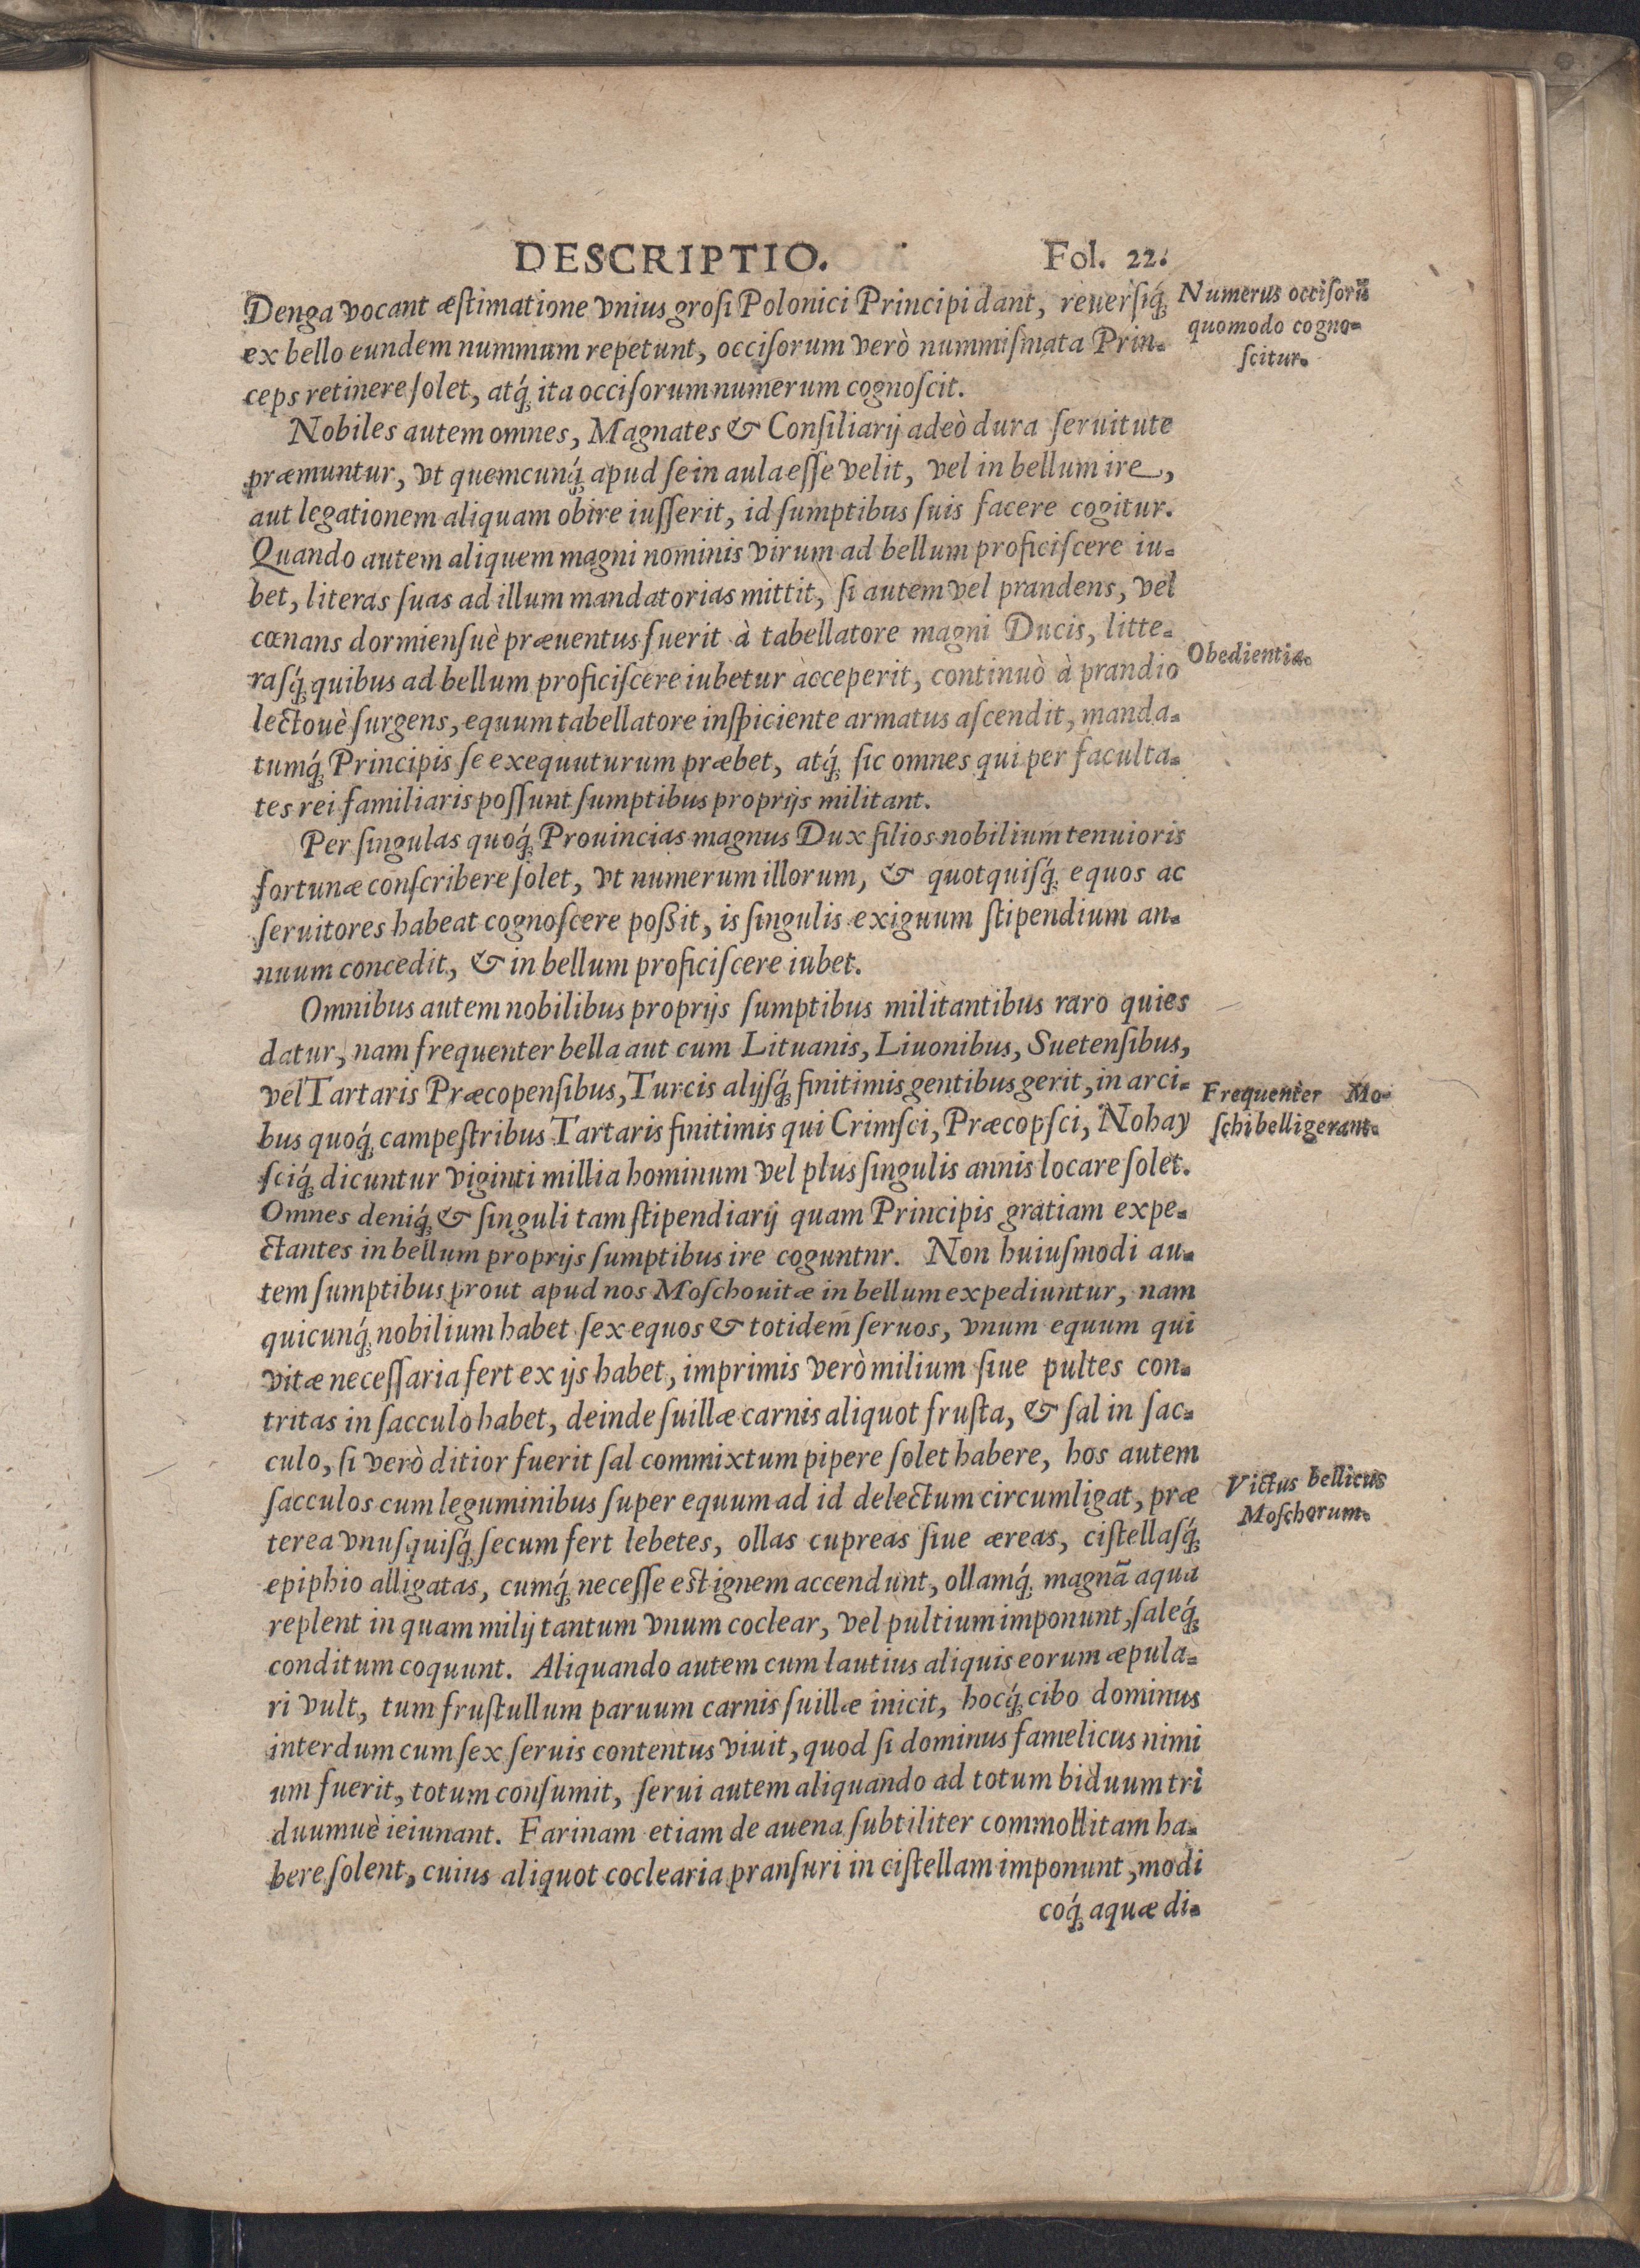 DESCRIPTIO. Fol. 22.
Denga vocant æſtimatione vnius groſi Polonici Principi dant, reuerſiq́;
ex bello eundem nummum repetunt, occiſorum verò nummiſmata Prin-
ceps retinere ſolet, atq́; ita occiſorum numerum cognoſcit.
Numerus occiſorũ
quomodo cogno-
ſcitur.
Nobiles autem omnes, Magnates & Conſiliarij adeò dura ſeruitute
præmuntur, vt quemcunq́; apud ſe in aula eſſe velit, vel in bellum ire,
aut legationem aliquam obire iuſſerit, id ſumptibus ſuis facere cogitur.
Quando autem aliquem magni nominis virum ad bellum proficiſcere iu-
bet, literas ſuas ad illum mandatorias mittit, ſi autem vel prandens, vel
cœnans dormienſuè præuentus fuerit à tabellatore magni Ducis, litte-
raſq́; quibus ad bellum proficiſcere iubetur acceperit, continuò à prandio
lectouè ſurgens, equum tabellatore inſpiciente armatus aſcendit, manda-
tumq́; Principis ſe exequuturum præbet, atq́; ſic omnes qui per faculta-
tes rei familiaris poſſunt ſumptibus proprijs militant.
Obedientia.
Per ſingulas quoq́; Prouincias magnus Dux filios nobilium tenuioris
fortunæ conſcribere ſolet, vt numerum illorum, & quotquiſq́; equos ac
ſeruitores habeat cognoſcere poßit, is ſingulis exiguum ſtipendium an-
nuum concedit, & in bellum proficiſcere iubet.
Omnibus autem nobilibus proprijs ſumptibus militantibus raro quies
datur, nam frequenter bella aut cum Lituanis, Liuonibus, Suetenſibus,
vel Tartaris Præcopenſibus, Turcis alijſq́; finitimis gentibus gerit, in arci-
bus quoq́; campeſtribus Tartaris finitimis qui Crimſci, Præcopſci, Nohay
ſciq́; dicuntur viginti millia hominum vel plus ſingulis annis locare ſolet.
Omnes deniq́; & ſinguli tam ſtipendiarij quam Principis gratiam expe-
ctantes in bellum proprijs ſumptibus ire coguntnr. Non huiuſmodi au-
tem ſumptibus prout apud nos Moſchouitæ in bellum expediuntur, nam
quicunq́; nobilium habet ſex equos & totidem ſeruos, vnum equum qui
vitæ neceſſaria fert ex ijs habet, imprimis verò milium ſiue pultes con-
tritas in ſacculo habet, deinde ſuillæ carnis aliquot fruſta, & ſal in ſac-
culo, ſi verò ditior fuerit ſal commixtum pipere ſolet habere, hos autem
ſacculos cum leguminibus ſuper equum ad id delectum circumligat, præ
terea vnuſquiſq́; ſecum fert lebetes, ollas cupreas ſiue æreas, ciſtellaſq́;
epiphio alligatas, cumq́; neceſſe eſt ignem accendunt, ollamq́; magnã aqua
replent in quam milij tantum vnum coclear, vel pultium imponunt, ſaleq́;
conditum coquunt. Aliquando autem cum lautius aliquis eorum æpula-
ri vult, tum fruſtullum paruum carnis ſuillæ inicit, hocq́; cibo dominus
interdum cum ſex ſeruis contentus viuit, quod ſi dominus famelicus nimi
um fuerit, totum conſumit, ſerui autem aliquando ad totum biduum tri
duumuè ieiunant. Farinam etiam de auena ſubtiliter commollitam ha-
bere ſolent, cuius aliquot coclearia pranſuri in ciſtellam imponunt, modi
coq́; aquæ di-
Frequenter Mo-
ſchi belligerant.
Victus bellicus
Moſchorum.